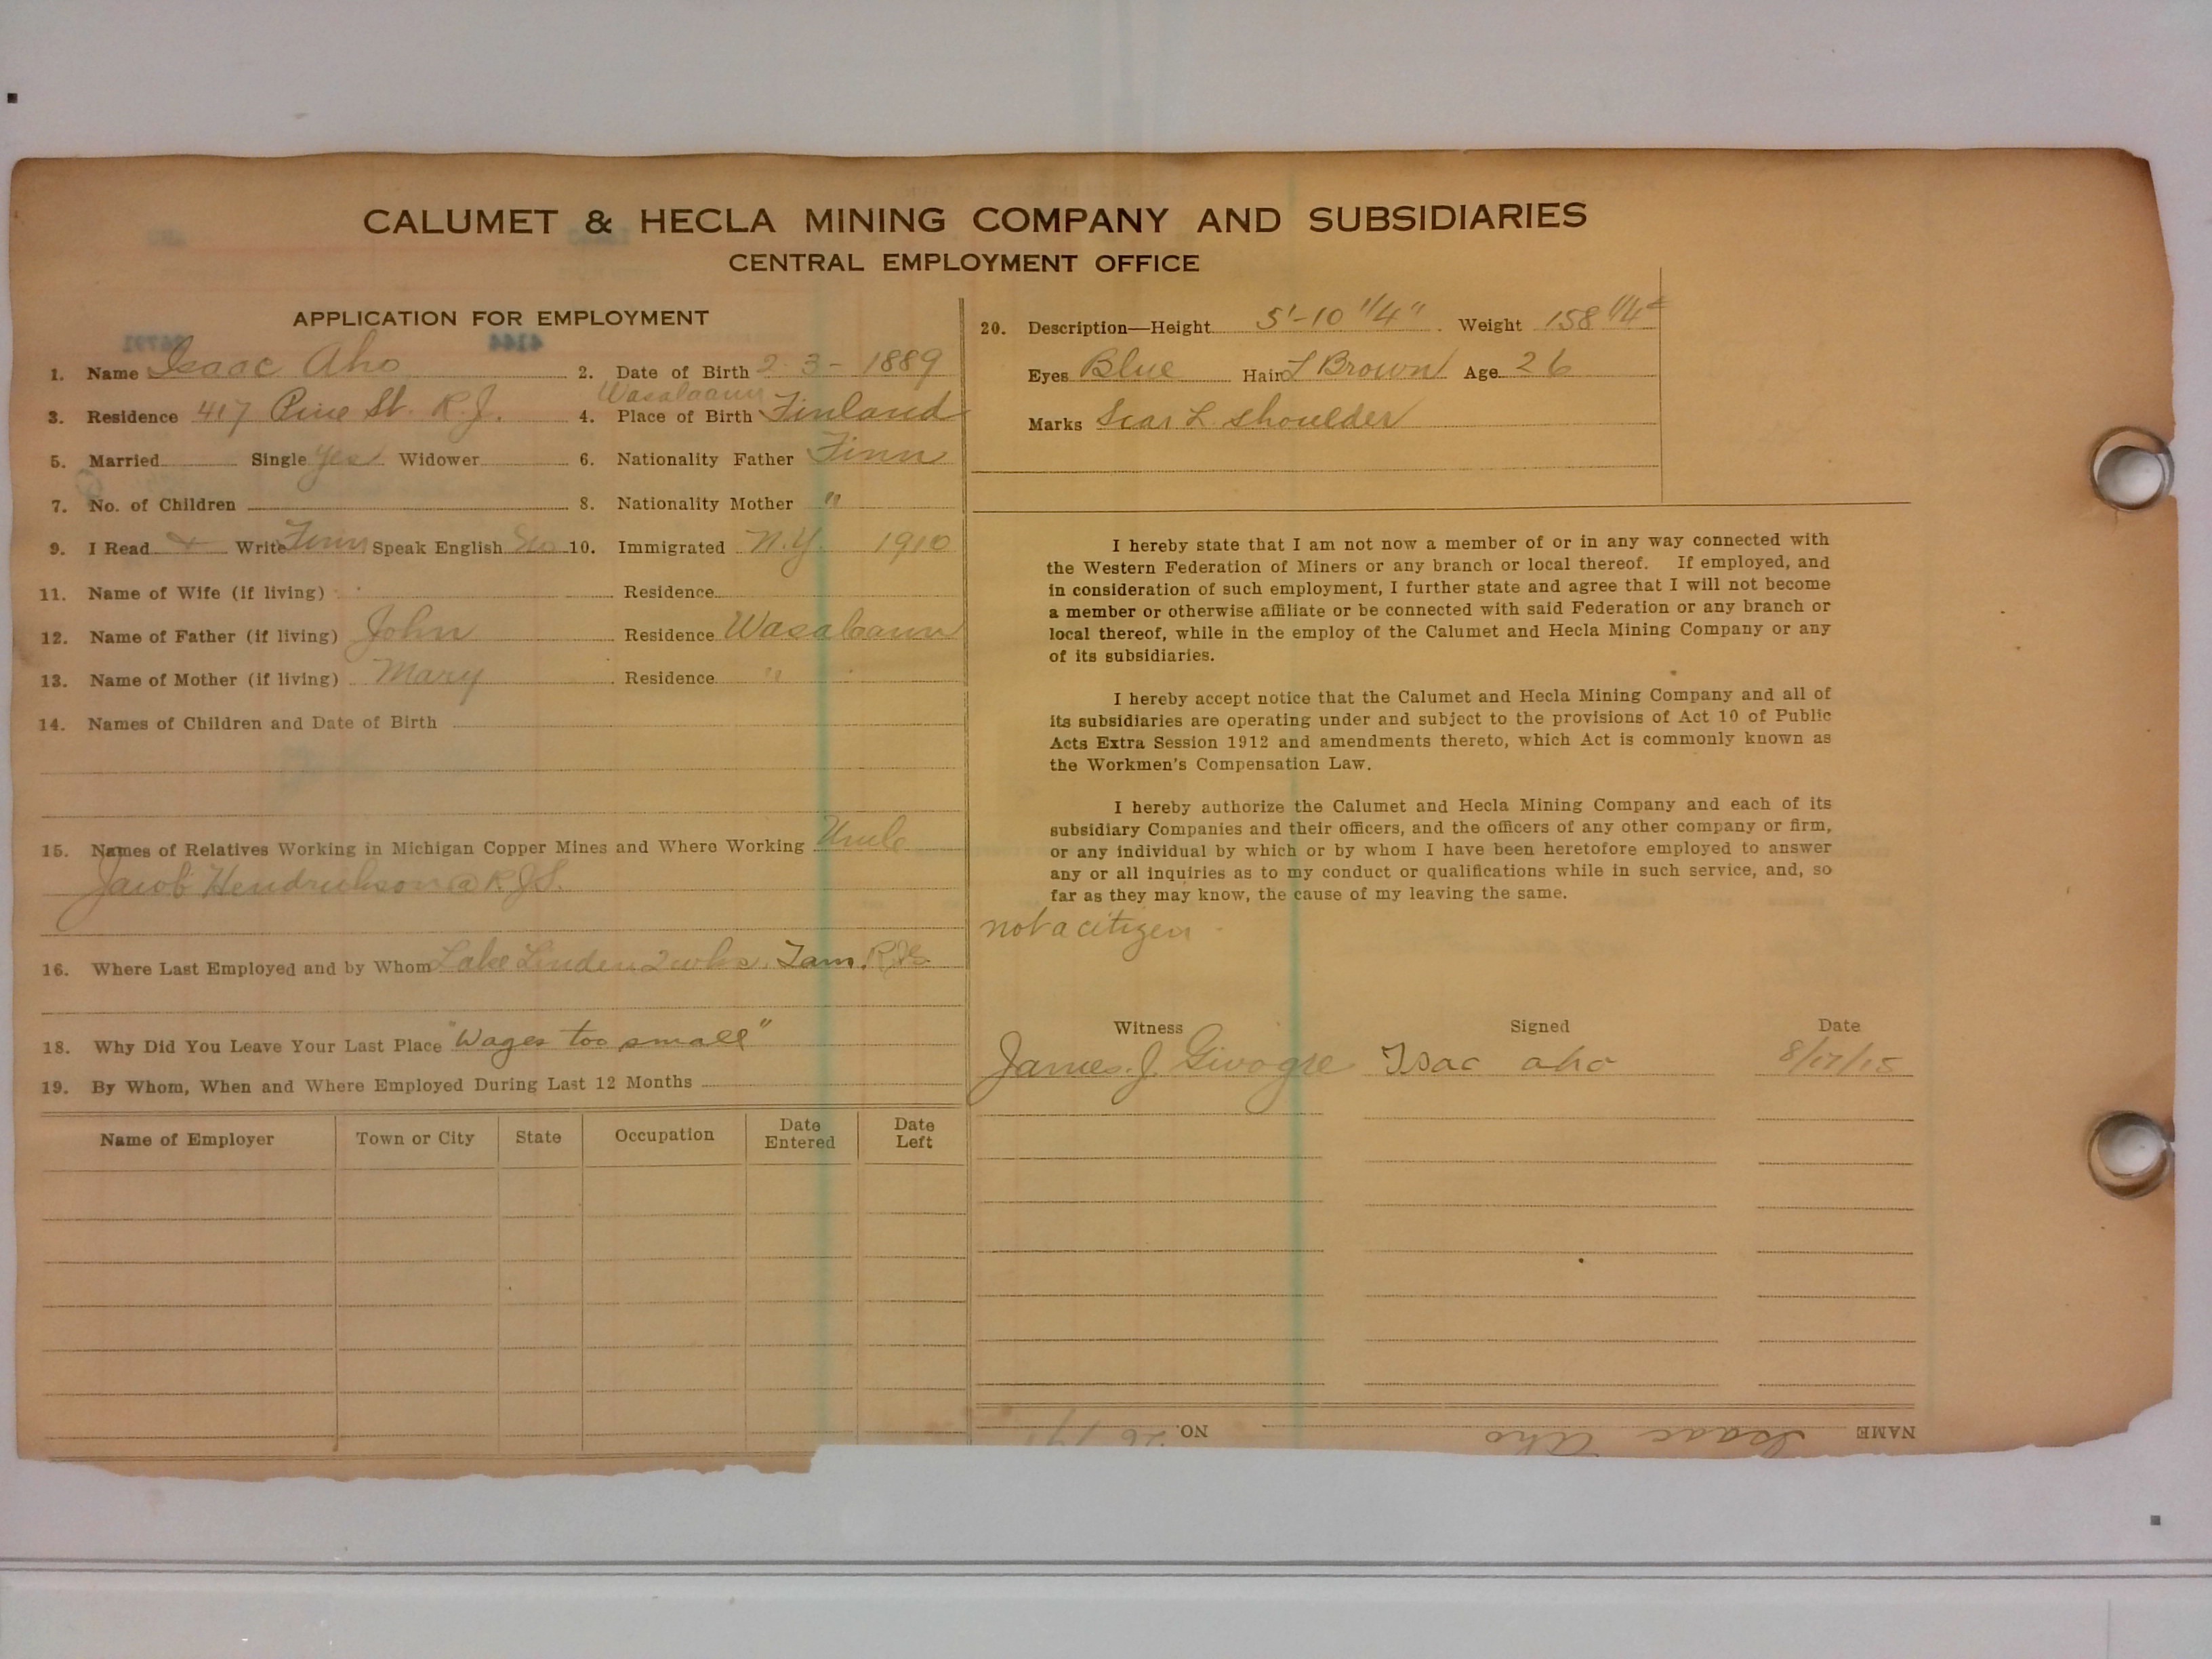 CALUMET & HECLA MINING COMPANY AND SUBSIDIARIES
CENTRAL EMPLOYMENT OFFICE
APPLICATION FOR EMPLOYMENT
1. Name Isaac Aho 2. Date of Birth 2 3 - 1889
Wasalaann
3. Residence 417 Pine St. R.J. 4. Place of Birth Finland
5. Married Single Yes Widower 6. Nationality Father Finn
7. No. of Children 8. Nationality Mother "
9. I Read + Write Finn Speak English 10. Immigrated N.Y. 1910
11. Name of Wife (if living) Residence
12. Name of Father (if living) John Residence Wasalaann
13. Name of Mother (if living) Mary Residence "
14. Names of Children and Date of Birth
15. Names of Relatives Working in Michigan Copper Mines and Where Working Uncle
Jacob Hendrickson @ R.J.S.
16. Where Last Employed and by Whom Lake Linden 2 wks. Tam.
18. Why Did You Leave Your Last Place "Wages too small"
19. By Whom, When and Where Employed During Last 12 Months
Name of Employer Town or City State Occupation Date Entered Date Left
20. Description—Height 5'-10 1/4" Weight 158 1/4 #
Eyes Blue Hair L Brown Age 26
Marks Scar L. shoulder
I hereby state that I am not now a member of or in any way connected with
the Western Federation of Miners or any branch or local thereof. If employed, and
in consideration of such employment, I further state and agree that I will not become
a member or otherwise affiliate or be connected with said Federation or any branch or
local thereof, while in the employ of the Calumet and Hecla Mining Company or any
of its subsidiaries.
I hereby accept notice that the Calumet and Hecla Mining Company and all of
its subsidiaries are operating under and subject to the provisions of Act 10 of Public
Acts Extra Session 1912 and amendments thereto, which Act is commonly known as
the Workmen's Compensation Law.
I hereby authorize the Calumet and Hecla Mining Company and each of its
subsidiary Companies and their officers, and the officers of any other company or firm,
or any individual by which or by whom I have been heretofore employed to answer
any or all inquiries as to my conduct or qualifications while in such service, and, so
far as they may know, the cause of my leaving the same.
not a citizen
Witness Signed Date
James. J. Givogre Isac aho 8/17/15
NAME Isaac Aho NO.